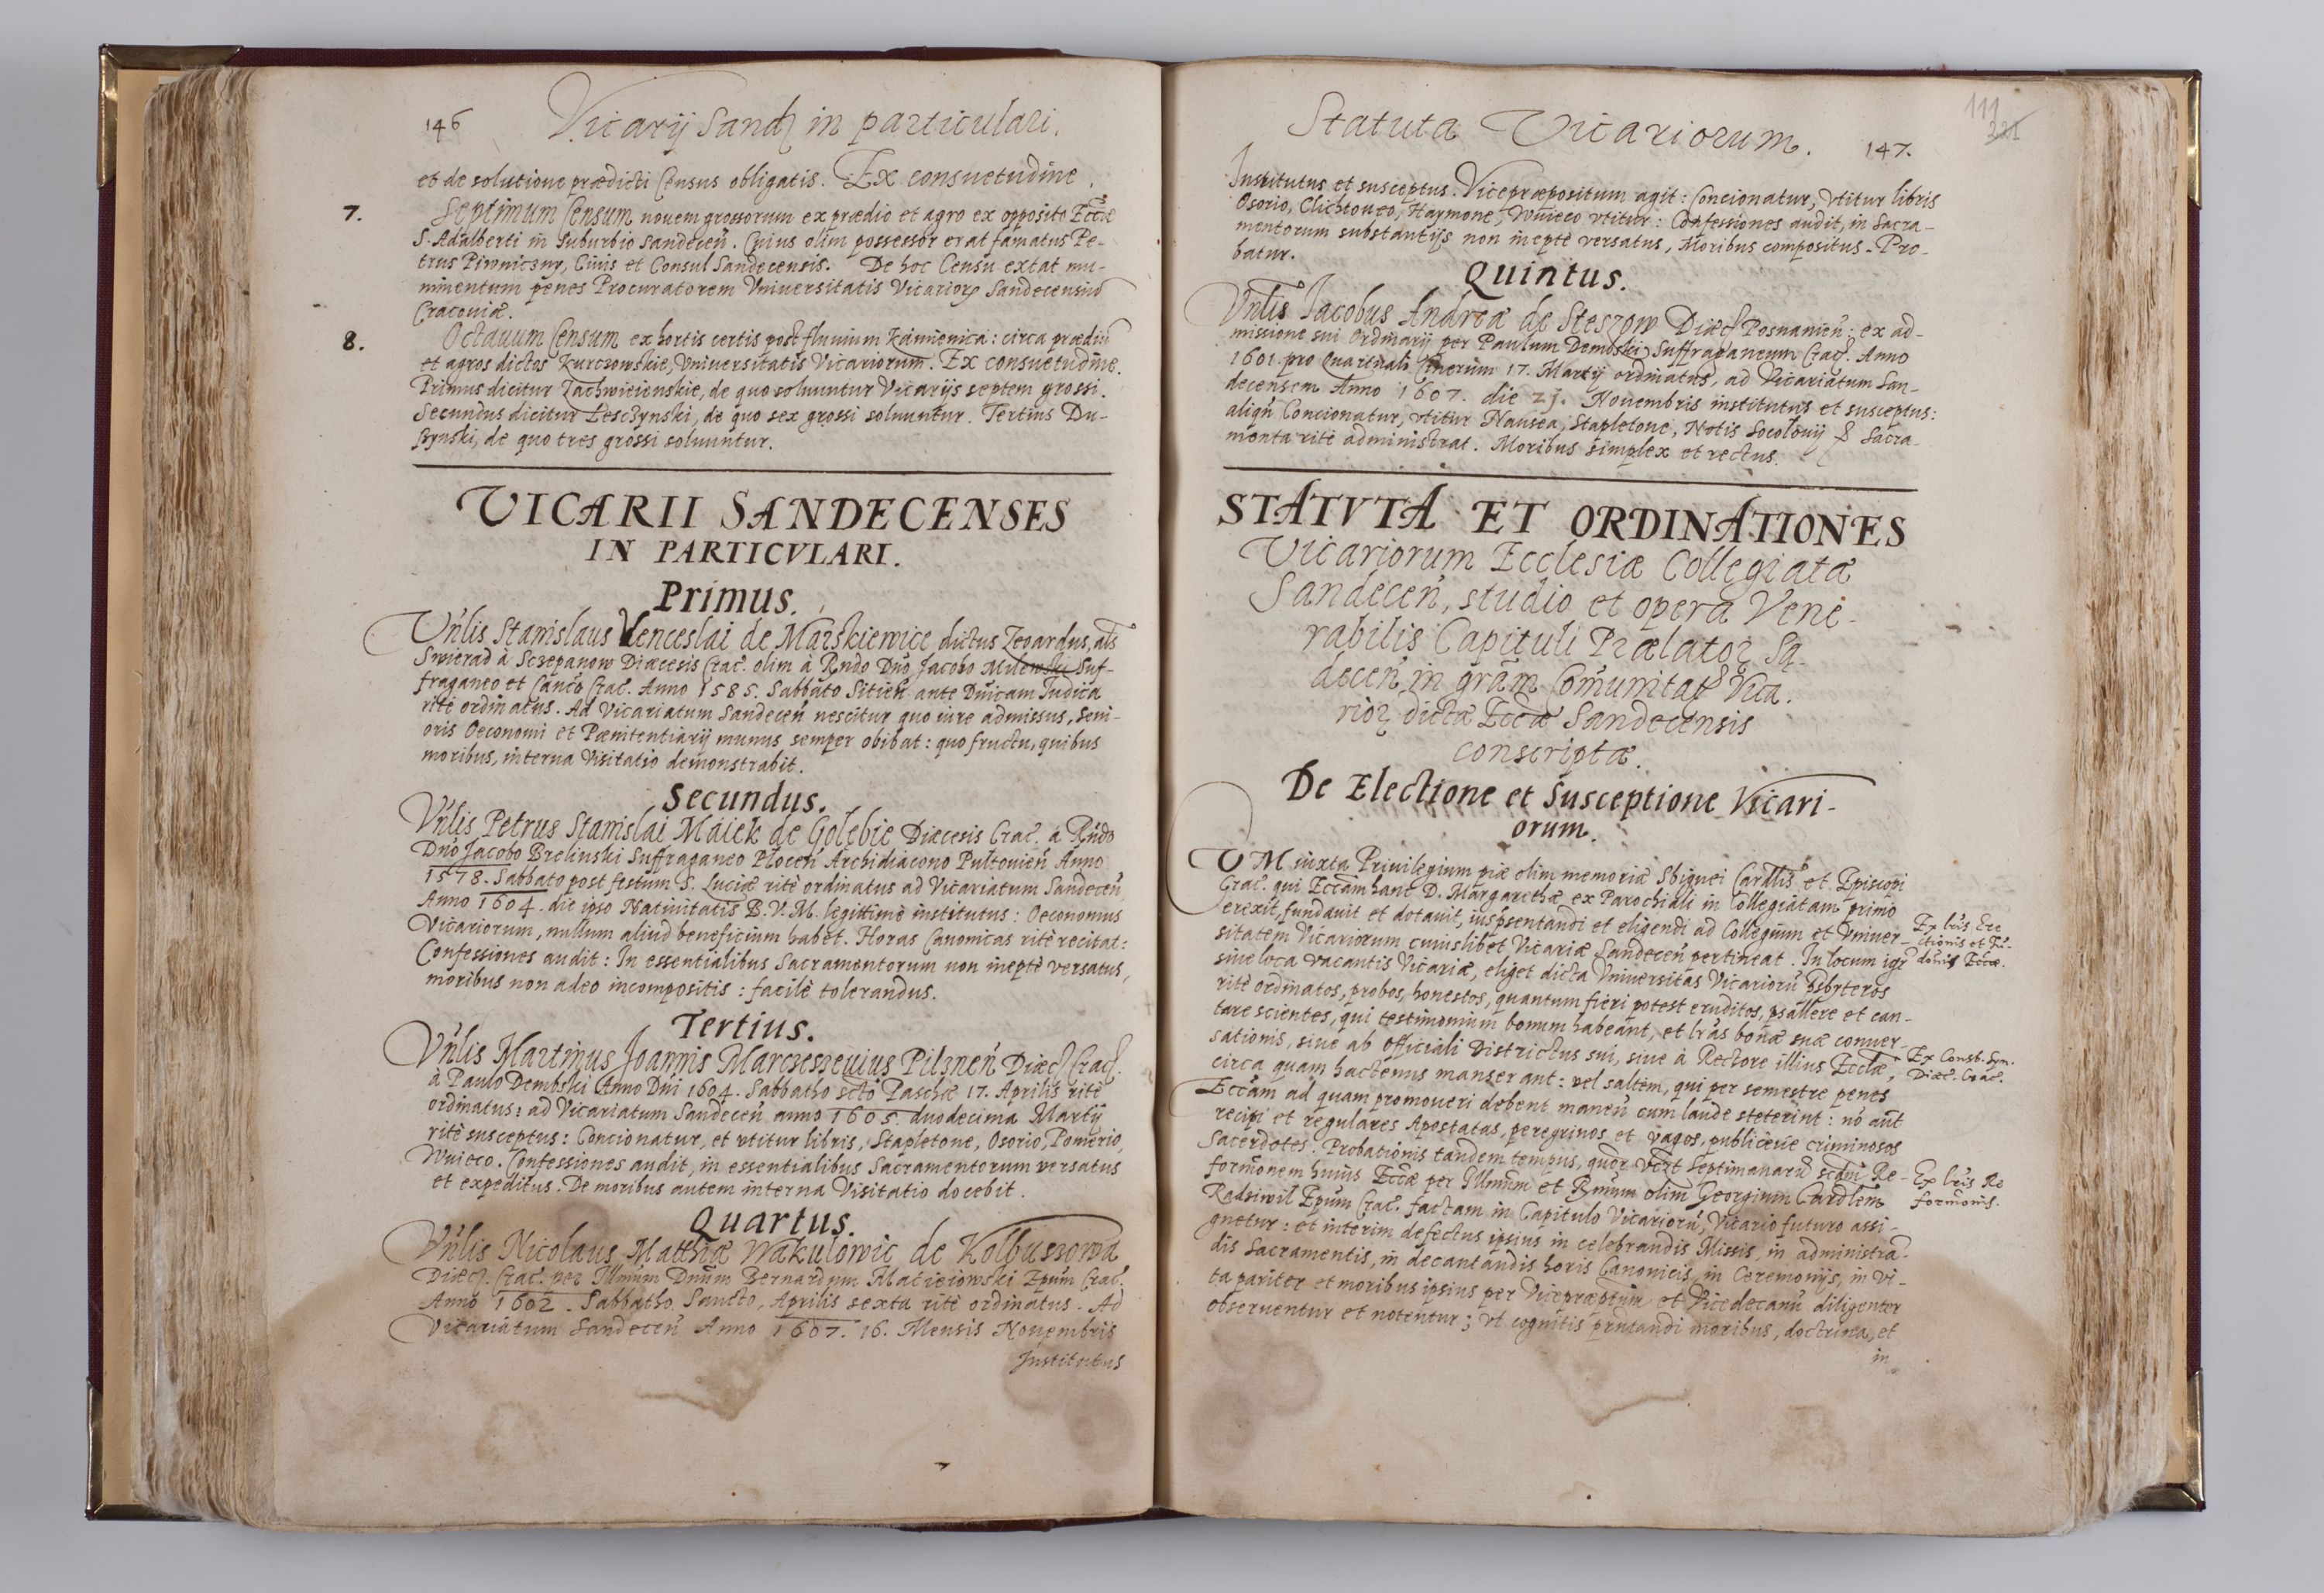 146 Vicarij Sandec in particulari.
et de solutione prædicti Census obligatis. Ex consuetudine.
7. Septimum Censum nouem grossorum ex prædio et agro ex opposito Eccæ
S. Adalberti in Suburbio Sandecen̄. Cuius olim possessor erat famatus Pe-
trus Piwniczny, Ciuis et Consul Sandecensis. De hoc Censu extat mu-
nimentum penes Procuratorem Vniuersitatis Vicarior Sandecensiū
Cracouiæ.
8. Octauum Censum ex hortis certis post fluuium Kamienica: circa prædiū
et agros dictos Kurczowskie, Vniuersitatis Vicariorum. Ex consuetudine.
Primus dicitur Zachwieiowskie, de quo soluuntur Vicarijs septem grossi.
Secundus dicitur Lesczynski, de quo sex grossi soluuntur. Tertius Du-
szynski, de quo tres grossi soluuntur.
VICARII SANDECENSES
IN PARTICVLARI.
Primus.
Vn̄lis Stanislaus Venceslai de Marskiewice dictus Zerardus, als
Swierad à Sczepanow Diæcesis Crac. olim à Rndo Dnō Jacobo Milewski Suf-
fraganeo et Canco Crac. Anno 1585. Sabbato Sitien̄. ante Dn̄icam Iudica
ritè ordinatus. Ad Vicariatum Sandecen̄ nescitur quo iure admissus, Seni-
oris Oeconomi et Pænitentiarij munus semper obibat: quo fructu, quibus
moribus, interna Visitatio demonstrabit.
Secundus.
Vn̄lis Petrus Stanislai Maiek de Golębie Diæcesis Crac. à Rn̄do
Dnō Jacobo Brelinski Suffraganeo Plocen̄ Archidiacono Pultouien̄ Anno
1578. Sabbato post festum S. Luciæ ritè ordinatus ad Vicariatum Sandecen̄
Anno 1604. die ipso Natiuitatis B.V.M. legittimè institutus: Oeconomus
Vicariorum, nullum aliud beneficium habet. Horas Canonicas ritè recitat:
Confessiones audit: In essentialibus Sacramentorum non ineptè versatus,
moribus non adeo incompositis: facilè tolerandus.
Tertius.
Vn̄lis Martinus Joannis Marczeszeuius Pilznen̄ Diæc. Crac.
à Paulo Dembski Anno Dn̄i 1604. Sabbatho scto Paschæ 17. Aprilis ritè
ordinatus: ad Vicariatum Sandecen̄ anno 1605. duodecima Martij
ritè susceptus: Concionatur, et vtitur libris, Stapletone, Osorio, Pomerio,
Wuieco. Confessiones audit, in essentialibus Sacramentorum versatus
et expeditus. De moribus autem interna Visitatio docebit.
Quartus.
Vn̄lis Nicolaus Matthiæ Wakulowic de Kolbuszowa
Diæc. Crac. per Illmum Dnūm Bernardum Macieiowski Epum Crac.
Anno 1602. Sabbatho Sancto, Aprilis sexta ritè ordinatus. Ad
Vicariatum Sandecen̄ Anno 1607. 16. Mensis Nouembris
Institutus
Statuta Vicariorum. 147.
111
Institutus et susceptus: Vicepræpositum agit: Concionatur, vtitur libris
Osorio, Clichtoueo, Haymone, Wuieco vtitur: Confessiones audit, in Sacra-
mentorum substantijs non ineptè versatus, Moribus compositus. Pro-
batur.
Quintus.
Vn̄lis Jacobus Andreæ de Steszow Diæc Posnanien̄: ex ad-
missione sui Ordinarij per Paulum Dembski Suffraganeum Crac. Anno
1601. pro Quartuali Cinerum 17. Martij ordinatus, ad Vicariatum San-
decensem Anno 1607. die 25. Nouembris institutus et susceptus:
aliqn̄ Concionatur, vtitur Nausea, Stapletone, Notis Socolouij & Sacra-
menta ritè administrat. Moribus simplex et rectus.
STATVTA ET ORDINATIONES
Vicariorum Ecclesiæ Collegiatæ
Sandecen̄, studio et opera Vene-
rabilis Capituli Prælator Sā-
decen̄, in grām Comunitat Vica-
rior dictæ Eccæ Sandecensis
conscriptæ.
De Electione et Susceptione Vicari-
orum.
VM iuxta Priuilegium piæ olim memoriæ Sbignei Cardlis et Episcopi
Crac. qui Eccām hanc D. Margarethæ ex Parochiali in Collegiatam primo
erexit, fundauit et dotauit, ius pr̄sentandi et eligendi ad Collegium et Vniuer-
sitatem Vicariorum cuiuslibet Vicariæ Sandecen̄ pertineat. In locum igr
siue loca vacantis Vicariæ, eliget dicta Vniuersitas Vicariorū Psbyteros
ritè ordinatos, probos, honestos, quantum fieri potest eruditos, psallere et can-
tare scientes, qui testimonium bonum habeant, et lrās bonæ suæ conuer-
sationis, siue ab Officiali Districtus sui, siue à Rectore illius Ecclæ,
circa quam hactenus manserant: vel saltem, qui per semestre penes
Eccām ad quam promoueri debent manen̄ cum laude steterint: nō aut
recipi et regulares Apostatas, peregrinos et vagos, publiceue criminosos
Sacerdotes. Probationis tandem tempus, quor vēzt Septimanarū scdm Re-
formōnem huius Eccæ per Illmūm et Rmum olim Georgium Cardlēm
Radziwil Epum Crac. factam in Capitulo Vicariorū, Vicario futuro assi-
gnetur: et interim defectus ipsius in celebrandis Missis, in administrā-
dis Sacramentis, in decantandis horis Canonicis, in Ceremonijs, in vi-
ta pariter et moribus ipsius per Vicepræptum et Vicedecanū diligenter
obseruentur et notentur; vt cognitis probandi moribus, doctrina, et
in
Ex lris Ere
ctionis et Fū-
dōnis Eccæ.
Ex Const. Syn.
Diæc. Crac.
Ex lris Re
formōnis.